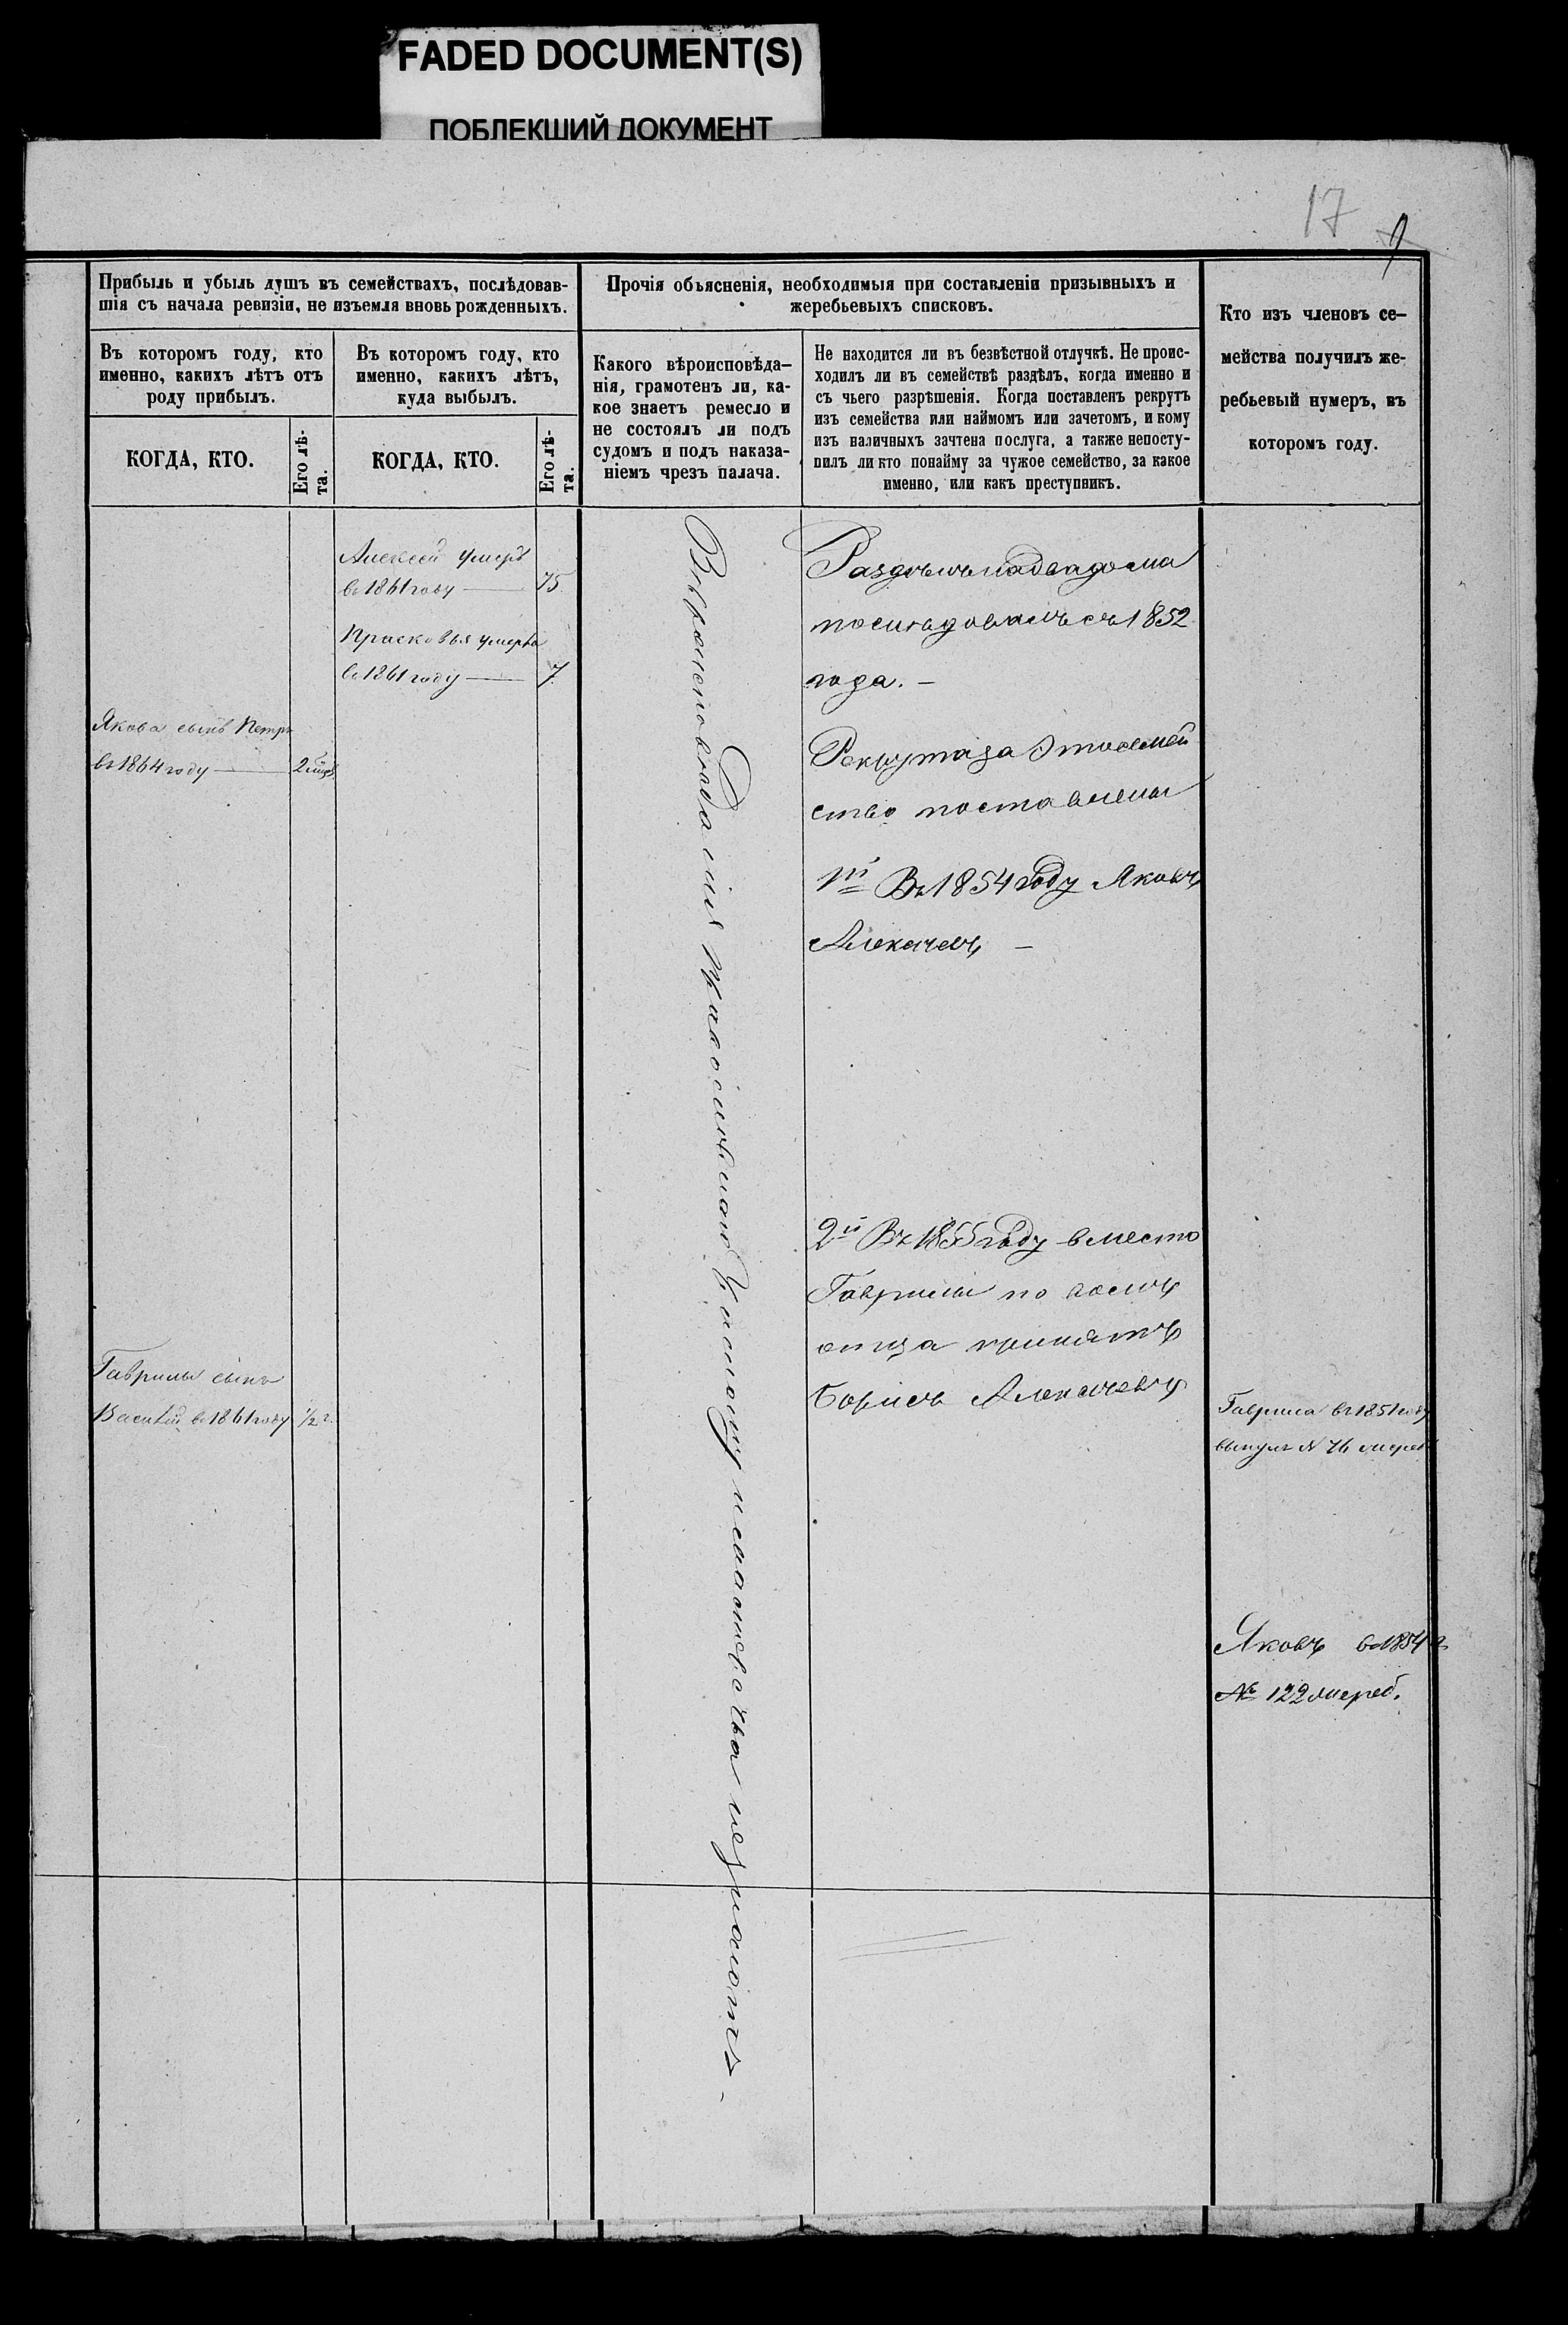 FADED DOCUMENT(S)
ПОБЛЕКШИЙ ДОКУМЕНТ
17
Прибыль и убыль душъ въ семействахъ, послѣдовав-
шія съ начала ревизіи, не изъемля вновь рожденныхъ.
Въ которомъ году, кто
именно, какихъ лѣтъ отъ
роду прибылъ.
КОГДА, КТО.
Его лѣ-
та.
Въ которомъ году, кто
именно, какихъ лѣтъ,
куда выбылъ.
КОГДА, КТО.
Его лѣ-
та.
Прочія объясненія, необходимыя при составленіи призывныхъ и
жеребьевыхъ списковъ.
Какого вѣроисповѣда-
нія, грамотенъ ли, ка-
кое знаетъ ремесло и
не состоялъ ли подъ
судомъ и подъ наказа-
ніемъ чрезъ палача.
Не находится ли въ безвѣстной отлучкѣ. Не проис-
ходилъ ли въ семействѣ раздѣлъ, когда именно и
съ чьего разрѣшенія. Когда поставленъ рекрутъ
изъ семейства или наймомъ или зачетомъ, и кому
изъ наличныхъ зачтена послуга, а также непосту-
пилъ ли кто понайму за чужое семейство, за какое
именно, или какъ преступникъ.
Кто изъ членовъ се-
мейства получилъ же-
ребьевый нумеръ, въ
которомъ году.
Якова сынъ Петръ
въ 1864 году
Гаврилы сынъ
Василій въ 1861 году 1/2 г.
Алексей умеръ
въ 1861 году 75
Прасковья умерла
въ 1861 году 7
Вѣроисповѣданія православнаго
Раздѣлъ на два дома
последовалъ съ 1852
года. —
Рекрута за это семей
ство поставлены
1й Въ 1854 году Яковъ
Алексеевъ —
2й Въ 1855 году вместо
Гаврилы по воле
отца принятъ
Борисъ Алексеевъ
Гаврила въ 1851 году
вынулъ № 76 жереб
Яковъ въ 1854 г.
№ 122 жереб.